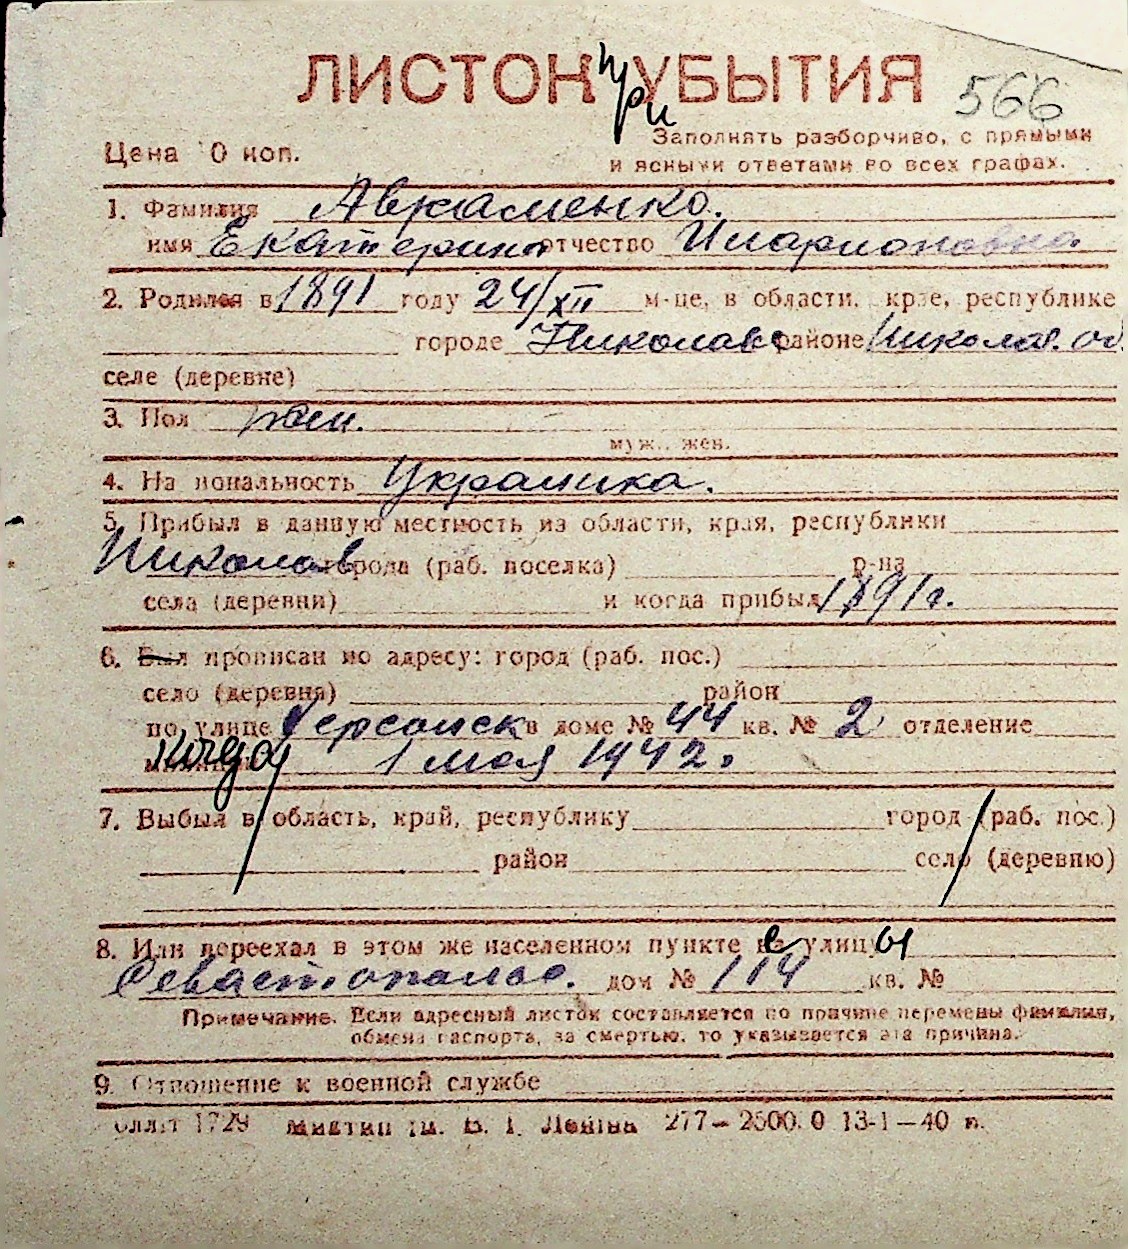 ЛИСТОК при УБЫТИЯ 566
Цена 10 коп. Заполнять разборчиво, с прямыми
и ясными ответами во всех графах.
1. Фамилия Авраменко.
имя Екатерина отчество Иларионовна
2. Родился в 1891 году 24/XII м-це, в области, крае, республике
городе Николаев районе Николаев. об.
селе (деревне)
3. Пол жен.
муж., жен.
4. Национальность Украинка.
5. Прибыл в данную местность из области, края, республики
Николаев города (раб. поселка) р-на
села (деревни) и когда прибыл 1891 г.
6. Был прописан по адресу: город (раб. пос.)
село (деревня) район
по улице Херсонск в доме № 44 кв. № 2 отделение
когда 1 мая 1942.
7. Выбыл в область, край, республику город (раб. пос.)
район село (деревню)
8. Или переехал в этом же населенном пункте с улицы
Севастопольс. дом № 114 кв. №
Примечание. Если адресный листок составляется по причине перемены фамилии,
обмена паспорта, за смертью, то указывается эта причина.
9. Отношение к военной службе
1729 В. І. Леніна 277—2500.0 13-1—40 п.